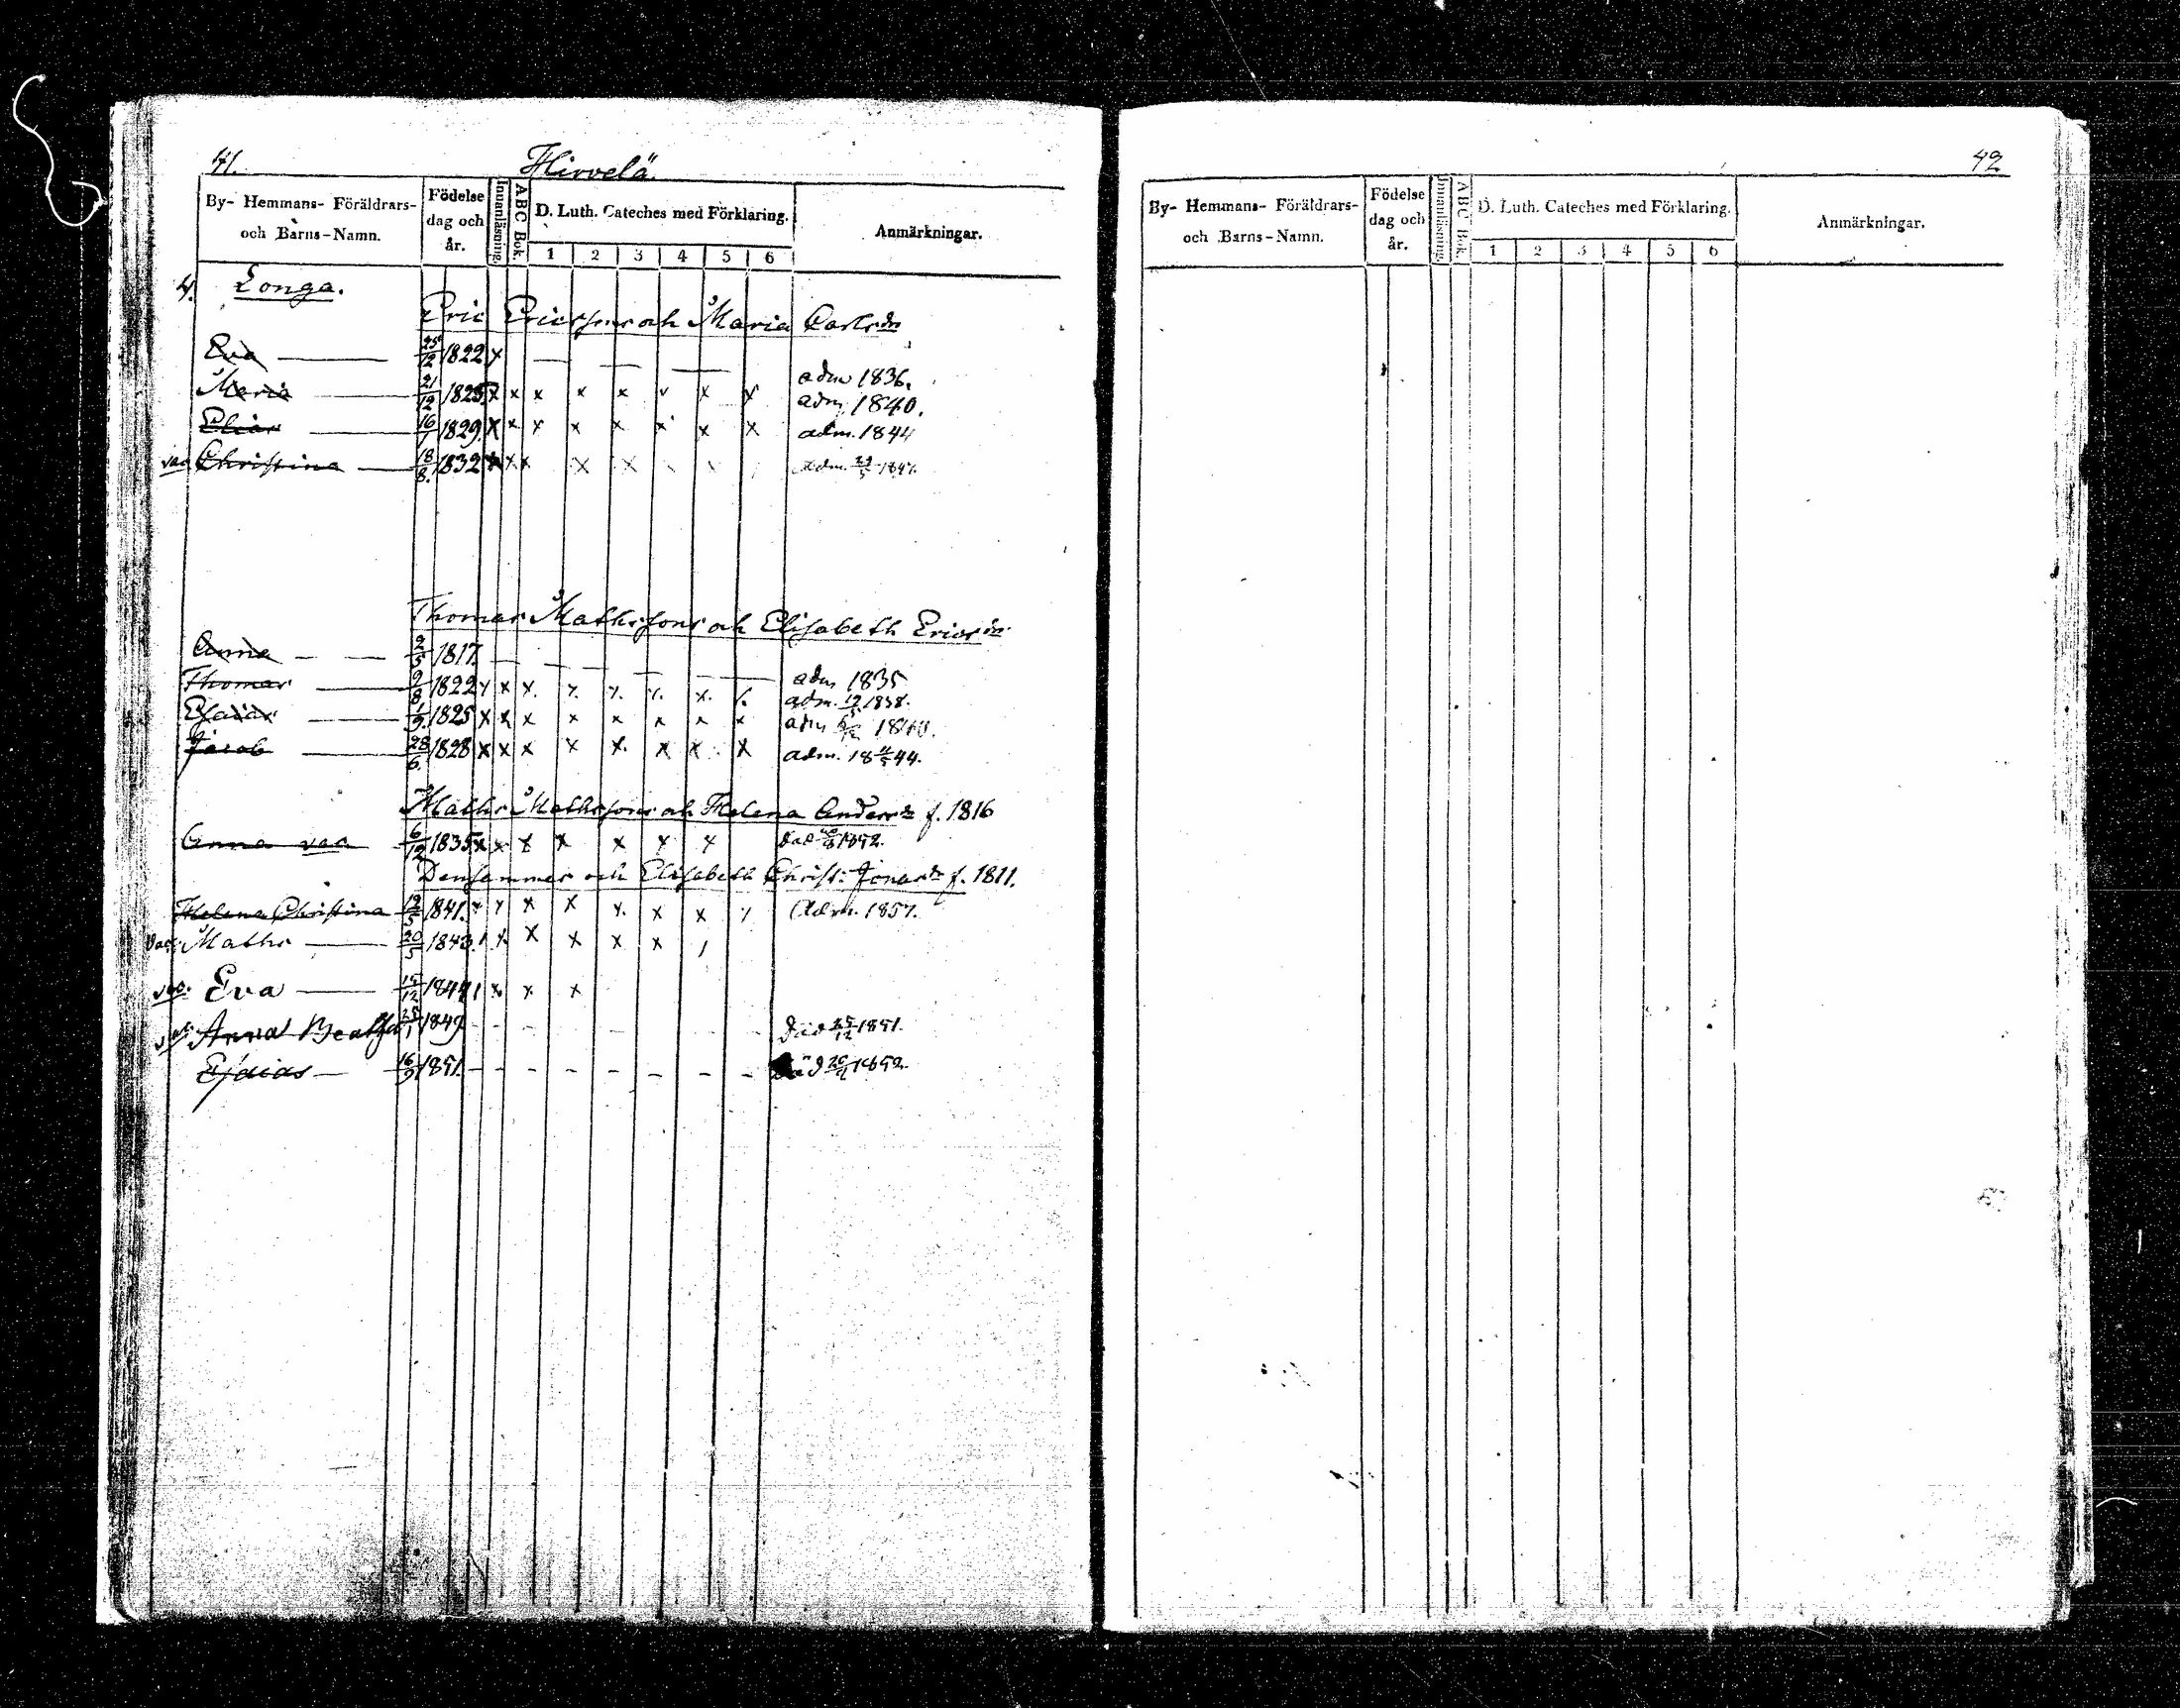 41.
Hirvelä.
By- Hemmans- Föräldrars- och Barns-Namn.
Födelse dag och år.
Innanläsning.
ABC Bok.
D. Luth. Cateches med Förklaring.
1 2 3 4 5 6
Anmärkningar.
4. Longa.
Eric Ericssons och Maria Carlsdr
Eva 25/12 1822 x adm 1836.
Maria 21/12 1825 x x x x x x x x adm. 1840.
Elias 16/1 1829. x x x x x x x x adm. 1844
vac Christina 18/8. 1832 x x x x x
Thomas Mathssons och Elisabeth Ericsdr
Anna 2/5 1817. adm 1835
Thomas 9/8 1822 x x x. x. x. x. x. x. adm. 1838.
Esaias 1/9. 1825 x x x x x x x x adm 1840.
Jacob 28/6. 1828 x x x x x. x x x adm. 18 44.
Maths Mathssons och Helena Andersdr f. 1816
Anna vac 6/12 1835 x x x x x x x död 1852.
Densammes och Elisabeth Christ: Jonasdr f. 1811.
Helena Christina 12/5 1841. x x x x x. x x x Adm. 1857.
Vac. Maths 20/5 1843. x x x x x
vac. Eva 15/12 1844 x. x x
vac. Anna Beatha 25/1 1849 - - - - - - död 25/12 1851.
Esaias 16/9 1851. - - - - - - - - död 1852.
42
By- Hemmans- Föräldrars- och Barns-Namn.
Födelse dag och år.
Innanläsning.
ABC Bok.
D. Luth. Cateches med Förklaring.
1 2 3 4 5 6
Anmärkningar.